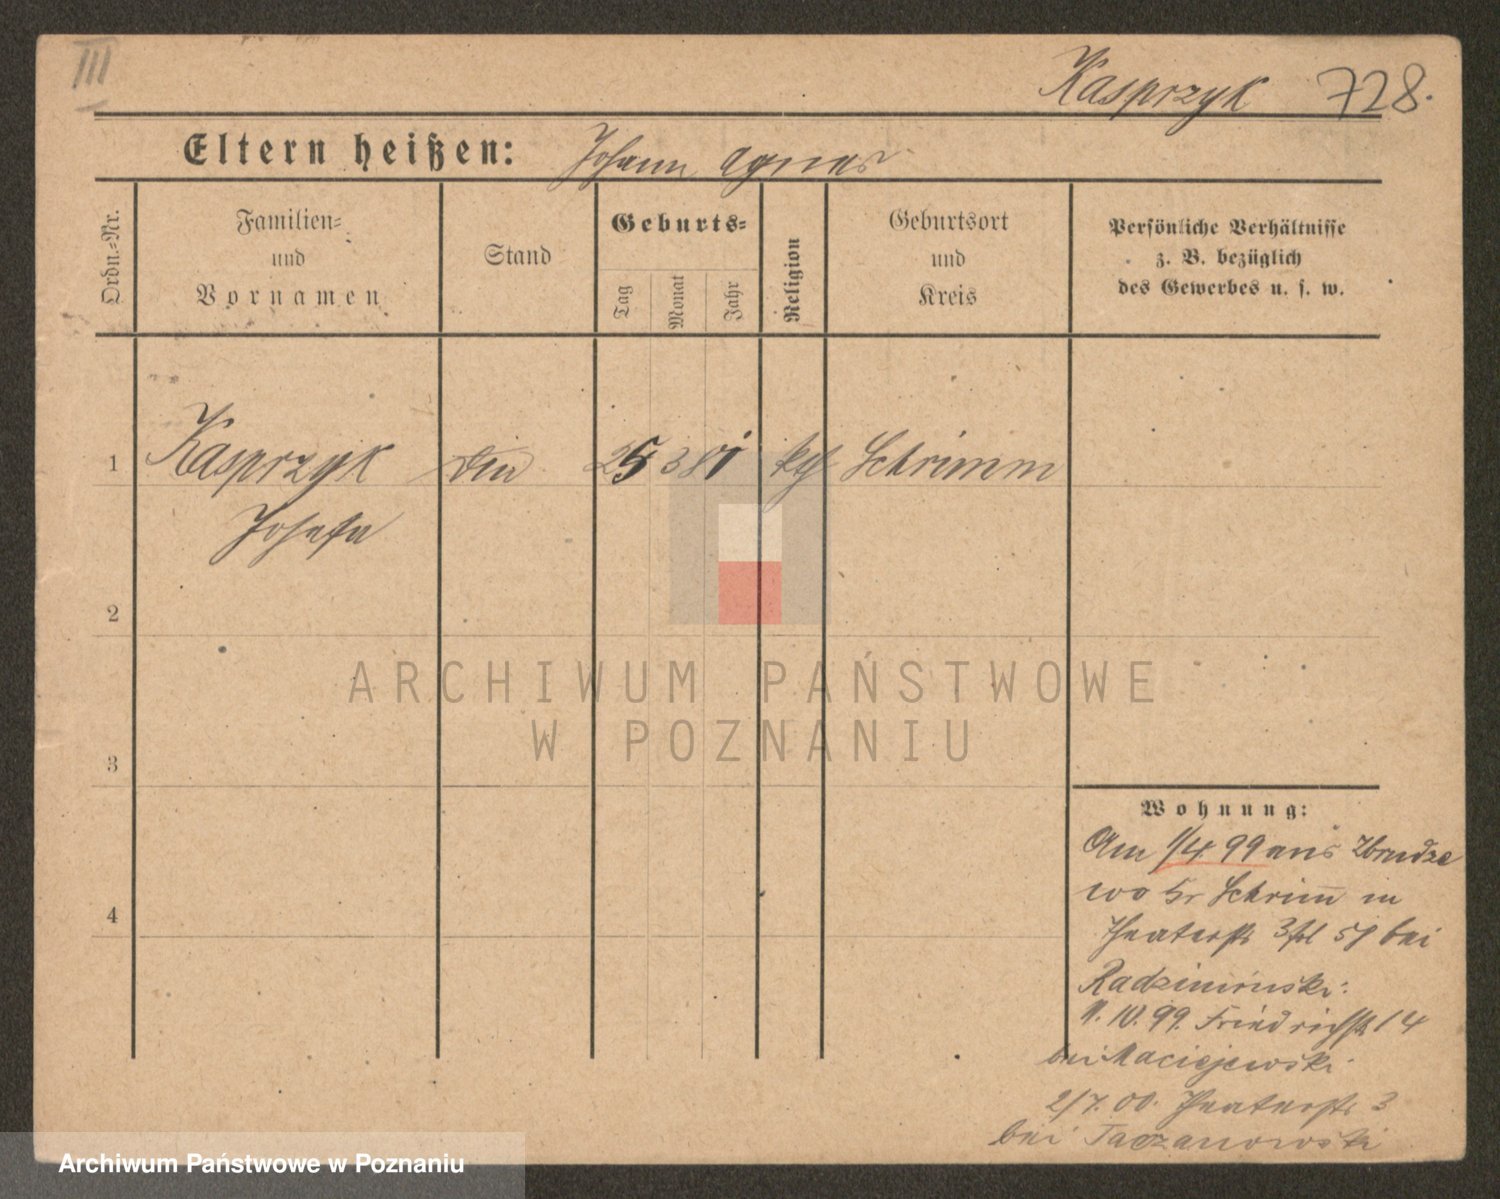 III
Kasprzyk 728.
Eltern heißen: Johann Agnes
Ordn.-Nr.
Familien-
und
Vornamen
Stand
Geburts-
Tag
Monat
Jahr
Religion
Geburtsort
und
Kreis
Persönliche Verhältnisse
z. B. bezüglich
des Gewerbes u. s. w.
1 Kasprzyk 25 3 81 kth Schrimm
Josefa
2
3
4
Wohnung:
Am 1/4. 99 aus Zbrudze
wo Kr Schrimm in
Theaterstr 3 bei
Radziminski.
10. 99. Friedrichstr 14
bei Maciejewski
2/7. 00. Theaterstr 3
bei Taczanowski
ARCHIWUM PAŃSTWOWE
W POZNANIU
Archiwum Państwowe w Poznaniu